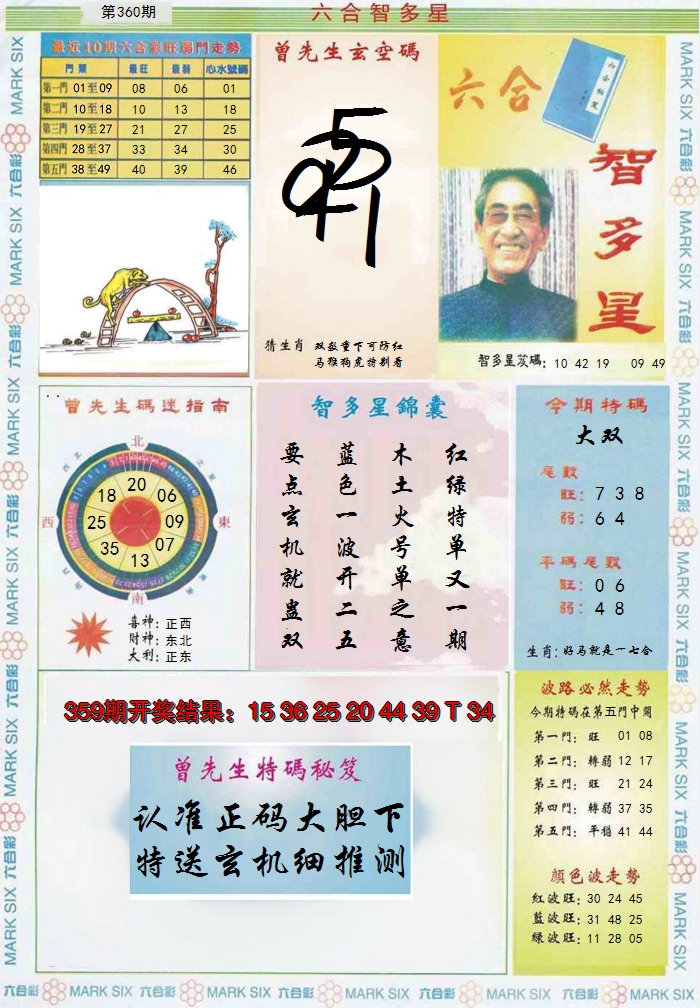 第360期
六合智多星
最近10期六合彩旺弱門走勢
門類 最旺 最弱 心水號碼
第一門 01至09 08 06 01
第二門 10至18 10 13 18
第三門 19至27 21 27 25
第四門 28至37 33 34 30
第五門 38至49 40 39 46
曾先生玄空碼
猜生肖 双数重下可防红
马猴狗虎特别看
六合
智多星
智多星笈碼: 10 42 19 09 49
曾先生碼迷指南
北
西
東
南
20
18
06
25
09
35
07
13
喜神: 正西
财神: 东北
大利: 正东
智多星錦囊
红绿特单又一期
木土火号单之意
蓝色一波开二五
要点玄机就蛊双
今期特碼
大双
尾数
旺: 7 3 8
弱: 6 4
平碼尾数
旺: 0 6
弱: 4 8
生肖: 好马就是一七合
359期开奖结果：15 36 25 20 44 39 T 34
曾先生特碼秘笈
认准正码大胆下
特送玄机细推测
波路必然走勢
今期特碼在第五門中開
第一門: 旺 01 08
第二門: 轉弱 12 17
第三門: 旺 21 24
第四門: 轉弱 37 35
第五門: 平穩 41 44
顏色波走勢
红波旺: 30 24 45
藍波旺: 31 48 25
绿波旺: 11 28 05
六合彩 MARK SIX 六合彩 MARK SIX 六合彩 MARK SIX 六合彩 MARK SIX 六合彩 MARK SIX